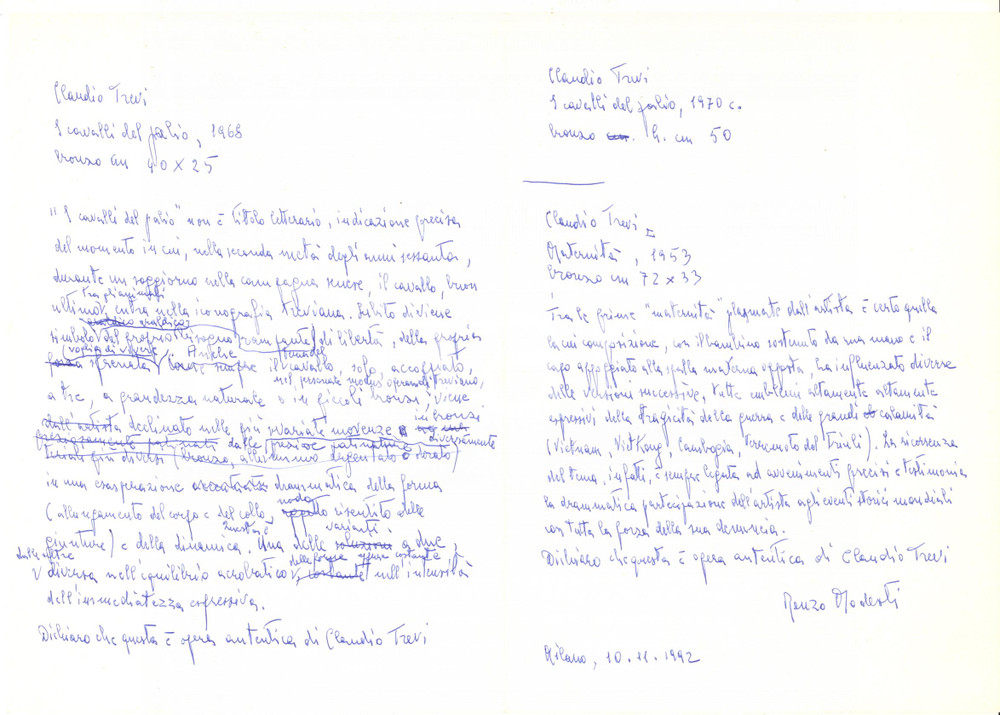 Claudio Trevi
I cavalli del palio, 1968
bronzo cm 40 x 25
"I cavalli del palio" non è titolo letterario, indicazione precisa
del momento in cui, nella seconda metà degli anni sessanta,
durante un soggiorno nella campagna senese, il cavallo, buon
ultimo, entra nella iconografia treviana. Subito diviene
simbolo del proprio sogno rampante di libertà, della propria
(voglia di vivere
sfrenata il cavallo, solo, accoppiato,
nel personale modus operandi treviano,
a tre, a grandezza naturale o in piccoli bronzi viene
in bronzi
dall'artista declinato nelle più svariate movenze
diversamente
dalle
(bronzo, alluminio argentato o dorato)
in una esasperazione drammatica della forma
(allungamento del corpo e del collo, nodo risentito delle
giunture) e della dinamica. Una delle varianti a due,
dalle altre
diversa nell'equilibrio acrobatico, nell'intensità
dell'immediatezza espressiva.
Dichiaro che questa è opera autentica di Claudio Trevi
Claudio Trevi
I cavalli del palio, 1970 c.
bronzo h. cm 50
Claudio Trevi
Maternità, 1953
bronzo cm 72 x 33
Tra le prime "maternità" plasmate dall'artista è certo quella
la cui composizione, con il bambino sostenuto da una mano e il
capo appoggiato alla spalla materna opposta, ha influenzato diverse
delle versioni successive, tutte emblemi altamente altamente
espressivi della tragicità della guerra e delle grandi calamità
(Vietnam, Vietkong, Cambogia, terremoto del Friuli). La ricorrenza
del tema, infatti, è sempre legata ad avvenimenti precisi e testimonia
la drammatica partecipazione dell'artista agli eventi storici mondiali
con tutta la forza della sua denuncia.
Dichiaro che questa è opera autentica di Claudio Trevi
Renzo Modesti
Milano, 10.11.1992